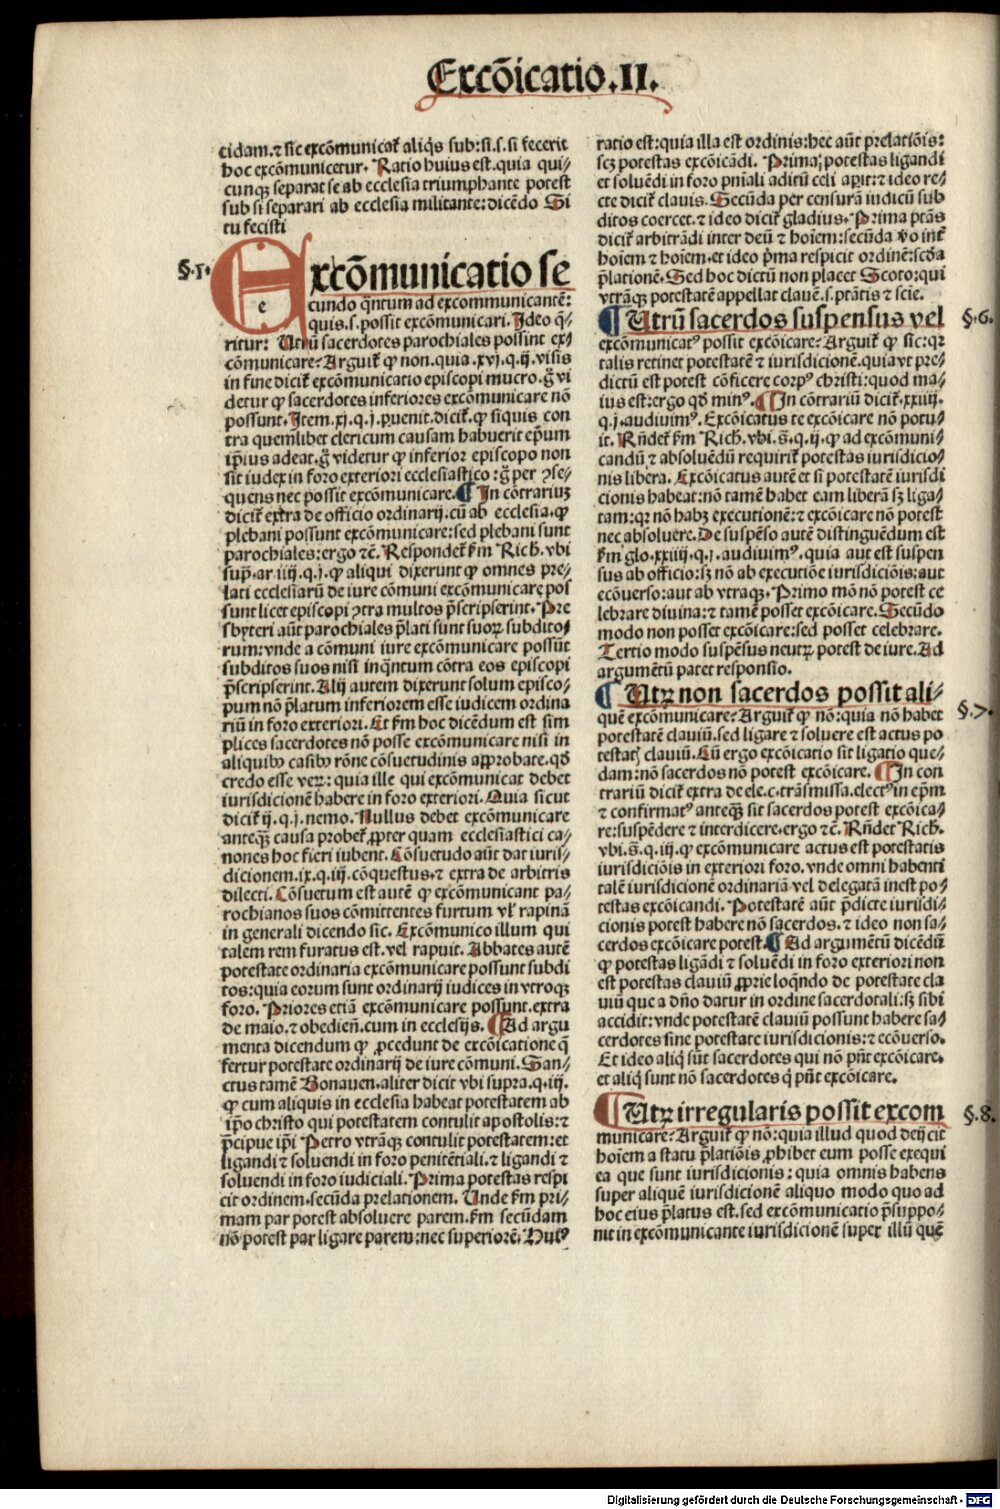 Excōicatio.II.
cidam.⁊ sic excōmunicat̄ aliq̄s sub:si.s.si fecerit
hoc excōmunicetur. Ratio huius est.quia qui⸗
cunqꝫ separat se ab ecclesia triumphante potest
sub si separari ab ecclesia militante:dicēdo Si
tu fecisti
§.1.
Excōmunicatio se
e
cundo q̄ntum ad excommunicantē:
quis.s.possit excōmunicari.Ideo q̄⸗
ritur: Utrū sacerdotes parochiales possint ex⸗
cōmunicare?Arguit̄ ꝙ non.quia.xvj.q.ij.visis
in fine dicit̄ excōmunicatio episcopi mucro.ḡ vi
detur ꝙ sacerdotes inferiores excōmunicare nō
possunt.Item.xj.q.j.ꝑuenit.dicit̄.ꝙ siquis con
tra quemlibet clericum causam habuerit ep̄um
ip̄ius adeat.ḡ videtur ꝙ inferior episcopo non
sit iudex in foro exteriori ecclesiastico:ḡ per ꝯse⸗
quens nec possit excōmunicare.¶ In cōtrariuꝫ
dicit̄ extra de officio ordinarij.cū ab ecclesia.ꝙ
plebani possunt excōmunicare:sed plebani sunt
parochiales:ergo ⁊c̄. Respondet̄ s̄m Rich̄.vbi
sup̄.ar iiij.q.j.ꝙ aliqui dixerunt ꝙ omnes pre⸗
lati ecclesiarū de iure cōmuni excōmunicare pos
sunt licet episcopi ꝯtra multos p̄scripserint.Pre
sbyteri aūt parochiales p̄lati sunt suoꝝ subdito⸗
rum:vnde a cōmuni iure excōmunicare possūt
subditos suos nisi inq̄ntum cōtra eos episcopi
p̄scripserint.Alij autem dixerunt solum episco⸗
pum nō p̄latum inferiorem esse iudicem ordina
riū in foro exteriori.Et s̄m hoc dicēdum est sim
plices sacerdotes nō posse excōmunicare nisi in
aliquibꝫ casibꝫ rōne cōsuetudinis approbate.qđ
credo esse veꝝ:quia ille qui excōmunicat debet
iurisdictionē habere in foro exteriori.Quia sicut
dicit̄ ij.q.j.nemo.Nullus debet excōmunicare
anteq̄ꝫ causa probet̄.ꝓpter quam ecclesiastici ca⸗
nones hoc fieri iubent.Cōsuetudo aūt dat iuris⸗
dicionem.ix.q.iij.cōquestus.⁊ extra de arbitris
dilecti.Cōsuetum est autē ꝙ excōmunicant pa⸗
rochianos suos cōmittentes furtum vl̄ rapinā
in generali dicendo sic. Excōmunico illum qui
talem rem furatus est.vel rapuit. Abbates autē
potestate ordinaria excōmunicare possunt subdi
tos:quia eorum sunt ordinarij iudices in vtroqꝫ
foro. Priores etiā excōmunicare possunt.extra
de maio.⁊ obedien̄.cum in ecclesijs.¶Ad argu
menta dicendum ꝙ ꝓcedunt de excōicatione q̄
fertur potestate ordinarij de iure cōmuni.San⸗
ctus tamē Bonauen.aliter dicit vbi supra.q.iij.
ꝙ cum aliquis in ecclesia habeat potestatem ab
ip̄o christo qui potestatem contulit apostolis:⁊
p̄cipue ip̄i Petro vtrāqꝫ contulit potestatem:et
ligandi ⁊ soluendi in foro penitētiali.⁊ ligandi ⁊
soluendi in foro iudiciali.Prima potestas respi
cit ordinem.secūda prelationem. Unde s̄m pri⸗
mam par potest absoluere parem.s̄m secūdam
nō potest par ligare parem:nec superiorē.Huiꝰ
ratio est:quia illa est ordinis:hec aūt prelatiōis:
scꝫ potestas excōicādi. Prima; potestas ligandi
et soluēdi in foro pn̄iali aditū celi aꝑit:⁊ ideo re⸗
cte dicit̄ clauis.Secūda per censurā iudicū sub
ditos coercet.⁊ ideo dicit̄ gladius.Prima ptās
dicit̄ arbitrādi inter deū ⁊ hoīem:secūda v̄o int̄
hoīem ⁊ hoīem.et ideo p̄ma respicit ordinē:scd̄a
p̄lationē.Sed hoc dictū non placet Scoto:qui
vtrāqꝫ potestatē appellat clauē.s.ptātis ⁊ scie.
¶Utrū sacerdos suspensus vel
§.6.
excōmunicatꝰ possit excōicare?Arguit̄ ꝙ sic:qꝛ
talis retinet potestatē ⁊ iurisdictionē.quia vt pre⸗
dictū est potest cōficere corpꝰ christi:quod ma⸗
ius est:ergo qđ minꝰ.¶In cōtrariū dicit̄.xxiiij.
q.j.audiuimꝰ.Excōicatus te excōicare nō potu⸗
it.Rn̄det̄ s̄m Rich̄.vbi.s̄.q.ij.ꝙ ad excōmuni⸗
candū ⁊ absoluēdū requirit̄ potestas iurisdicio⸗
nis libera. Excōicatus autē et si potestatē iurisdi
cionis habeat:nō tamē habet eam liberā sꝫ liga⸗
tam:qꝛ nō habꝫ executionē:⁊ excōicare nō potest
nec absoluere.De suspēso autē distinguēdum est
s̄m glo.xxiiij.q.j.audiuimꝰ.quia aut est suspen
sus ab officio:sꝫ nō ab executiōe iurisdiciōis:aut
ecōuerso:aut ab vtraqꝫ.Primo mō nō potest ce
lebrare diuina:⁊ tamē posset excōicare.Secūdo
modo non posset excōicare:sed posset celebrare.
Tertio modo suspēsus neutꝝ potest de iure.Ad
argumētū patet responsio.
¶Utꝝ non sacerdos possit ali⸗
§.7.
quē excōmunicare?Arguit̄ ꝙ nō:quia nō habet
potestatē clauiū.sed ligare ⁊ soluere est actus po
testatꝭ clauiū.Cū ergo excōicatio sit ligatio que⸗
dam:nō sacerdos nō potest excōicare. ¶In con
trariū dicit̄ extra de ele.c.trāsmissa.electꝰ in ep̄m
⁊ confirmatꝰ anteq̄ꝫ sit sacerdos potest excōica⸗
re:suspēdere ⁊ interdicere.ergo ⁊c̄. Rn̄det Rich̄.
vbi.s̄.q.iij.ꝙ excōmunicare actus est potestatis
iurisdiciōis in exteriori foro.vnde omni habenti
talē iurisdicionē ordinariā vel delegatā inest po⸗
testas excōicandi. Potestatē aūt p̄dicte iurisdi⸗
cionis potest habere nō sacerdos.⁊ ideo non sa⸗
cerdos excōicare potest.¶Ad argumētū dicēdū
ꝙ potestas ligādi ⁊ soluēdi in foro exteriori non
est potestas clauiū ꝓprie loq̄ndo de potestate cla
uiū que a dn̄o datur in ordine sacerdotali:sꝫ sibi
accidit:vnde potestatē clauiū possunt habere sa⸗
cerdotes sine potestate iurisdicionis:⁊ ecōuerso.
Et ideo aliq̄ sūt sacerdotes qui nō pn̄t excōicare.
et aliq̄ sunt nō sacerdotes q̄ pn̄t excōicare.
¶Utꝝ irregularis possit excom
§.8.
municare?Arguit̄ ꝙ nō:quia illud quod deijcit
hoīem a statu p̄latiōis ꝓhibet eum posse exequi
ea que sunt iurisdicionis:quia omnis habens
super aliquē iurisdicionē aliquo modo quo ad
hoc eius p̄latus est.sed excōmunicatio p̄suppo⸗
nit in excōmunicante iurisdicionē super illū quē
Digitalisierung gefördert durch die Deutsche Forschungsgemeinschaft - DFG